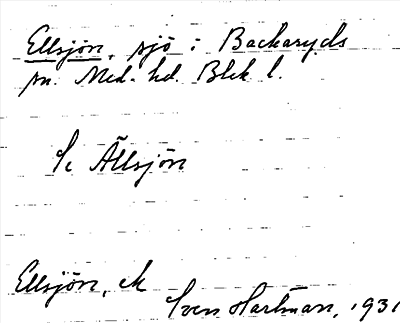 Ellsjön, sjö i Backaryds
sn. Med. hd. Blek l.
Se Ällsjön
Ellsjön, ek
Sven Hartman, 1931